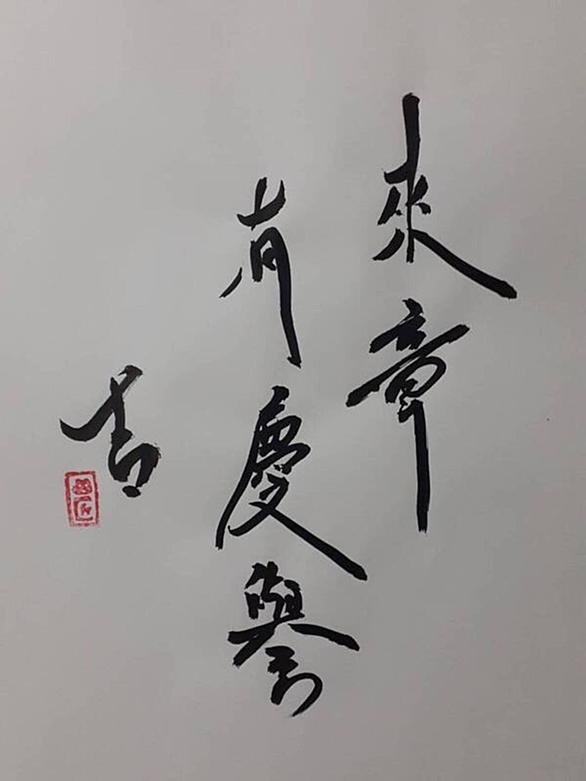 來章
有慶譽
吉